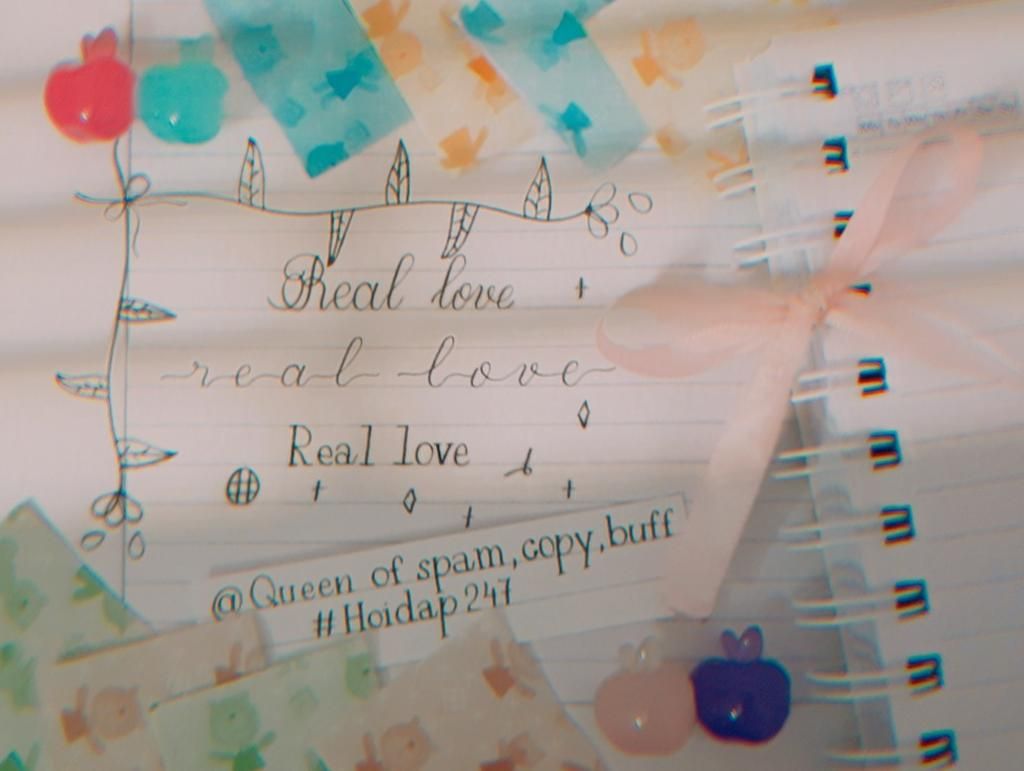 Real love
real love
Real love
@Queen of spam,copy,buff
#Hoidap247